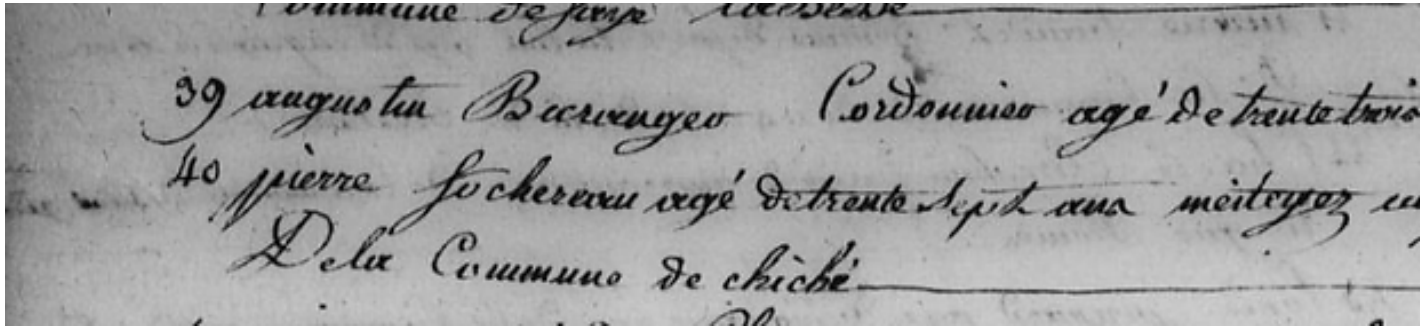 Commune de faye
39 augustin Baranger Cordonnier agé de trente trois
40 pierre fochereau agé de trente sept ans meiteyez
De la Commune de chiché